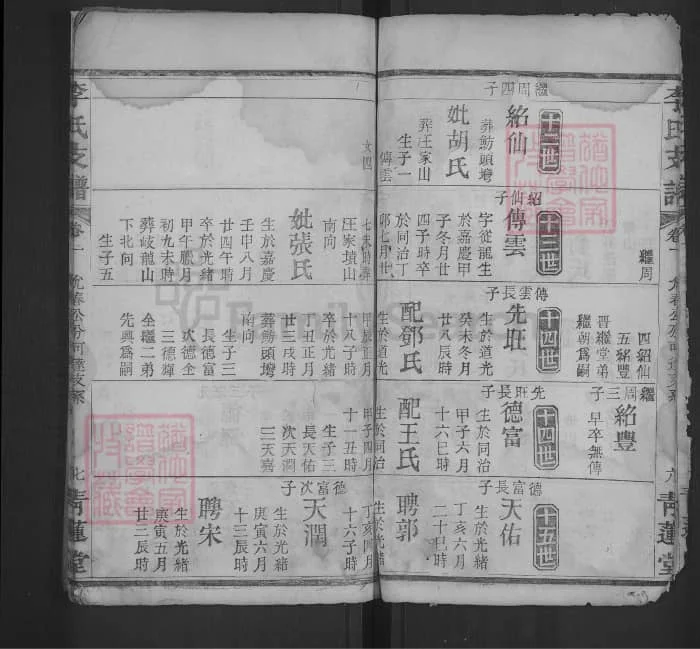 李氏支譜
卷一
九
青蓮堂
繼周
四紹仙
五紹豐
晋繼堂弟
繼朝爲嗣
繼周三子
紹豐
早卒無傳
十二世
繼周四子
紹仙
葬魴頭塆
妣胡氏
葬汪家山
生子一
傳雲
女四
十三世
紹仙子
傳雲
字從龍生
於嘉慶甲
子冬月廿
四子時卒
於同治丁
卯七月廿
七未時葬
汪家墳山
南向
妣張氏
生於嘉慶
壬申八月
廿四午時
卒於光緒
甲午臘月
初九未時
葬岐龍山
下北向
生子五
十四世
傳雲長子
先旺
生於道光
癸未冬月
廿八辰時
配鄧氏
生於道光
甲辰正月
十八子時
卒於光緒
丁丑正月
廿三戌時
葬魴頭塆
南向
生子三
長德富
次德金
三德暉
全繼二弟
先興爲嗣
十四世
先旺長子
德富
生於同治
甲子六月
十六巳時
配王氏
生於同治
甲子四月
十一丑時
生子三
長天佑
次天潤
三天嘉
十五世
德富長子
天佑
生於光緒
丁亥六月
二十巳時
聘郭
生於光緒
丁亥四月
十六子時
德富次子
天潤
生於光緒
庚寅六月
十三辰時
聘宋
生於光緒
庚寅五月
廿二辰時
李氏支譜
卷一
青蓮堂